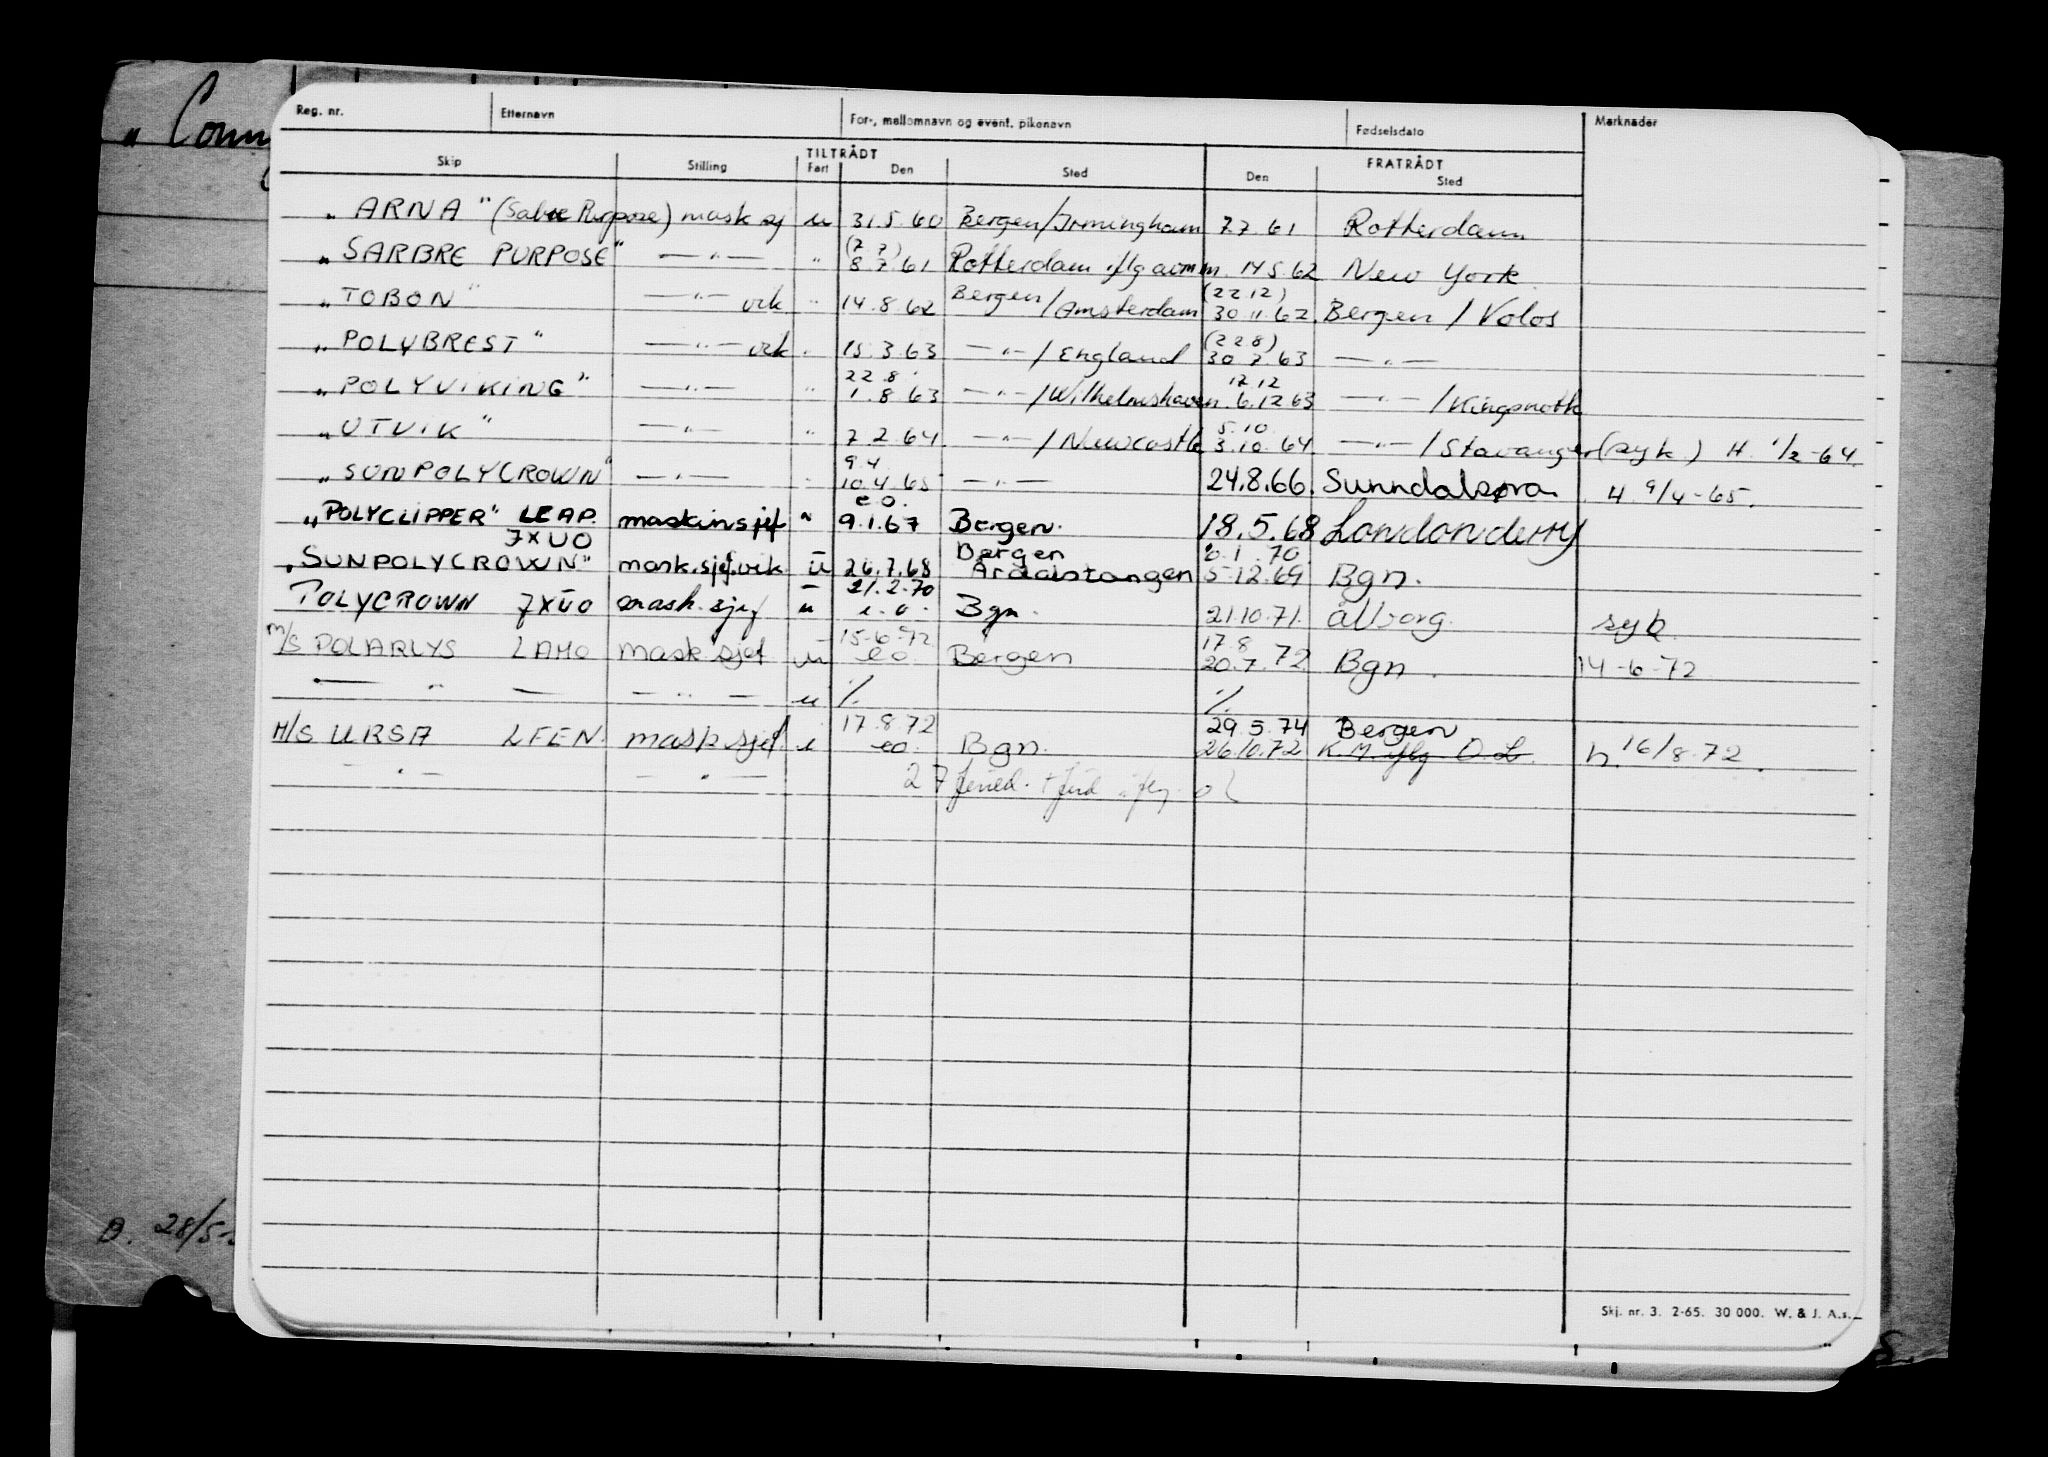 „ Conn
Reg. nr. Etternavn For-, mellomnavn og event. pikenavn Fødselsdato Merknader
TILTRÅDT FRATRÅDT
Skip Stilling Fart Den Sted Den Sted
„ ARNA " (Sabre Purpose) mask sj u 31.5.60 Bergen/Irmingham 7.7.61 Rotterdam
(7 7)
„ SARBRE PURPOSE" — " — " 8.7.61 Rotterdam iflg avm m. 14.5.62 New York
(22 12)
„ TOBON " — " — vik. " 14.8.62 Bergen / Amsterdam 30.11.62 Bergen / Volos
(22 8)
„ POLYBREST " — " — vik " 15.3.63 — " — / England 30.7.63 — " —
22.8. 12.12
„ POLYVIKING " — " — " 1.8.63 — " — / Wilhelmshaven. 6.12.63 — " — / Kingsnoth
5.10.
„ UTVIK " — " — " 7.2.64 — " — / Newcastle 3.10.64 — " — / Stavanger (syk.) H. 1/2-64.
9.4.
„ SUNPOLYCROWN" — " — " 10.4.65 — " — 24.8.66. Sunndalsøra H 9/4-65.
e o.
„POLYCLIPPER" LEAP. maskinsjef " 9.1.67 Bergen. 18.5.68 Londonderry
7XUO Bergen 6.1.70.
„SUNPOLYCROWN" mask.sjef.vik. u 26.7.68 Årdalstangen 5.12.69 Bgn.
21.2.70
POLYCROWN 7XUO mask.sjef u e.o. Bgn. 21.10.71. ålborg. syk.
15.6.72 17.8
M/S POLARLYS LAHO mask sjef u eo Bergen 20.7.72 Bgn. 14-6-72
— " — — " — u %. %.
17.8.72 29.5.74 Bergen
M/S URSA LFEN. mask sjef i eo. Bgn. 26/10.72 K.M. iflg O.L. h. 16/8.72.
— " — — " — 27 iflg. OL
D. 28/5-
Skj. nr. 3. 2-65. 30 000. W. & J. A.s.
S.